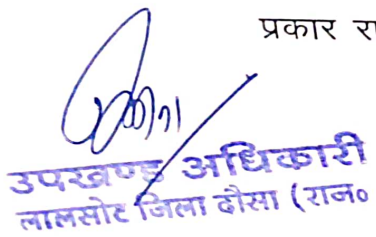 प्रकार रा
उपखण्ड अधिकारी
लालसोट जिला दौसा (राज०